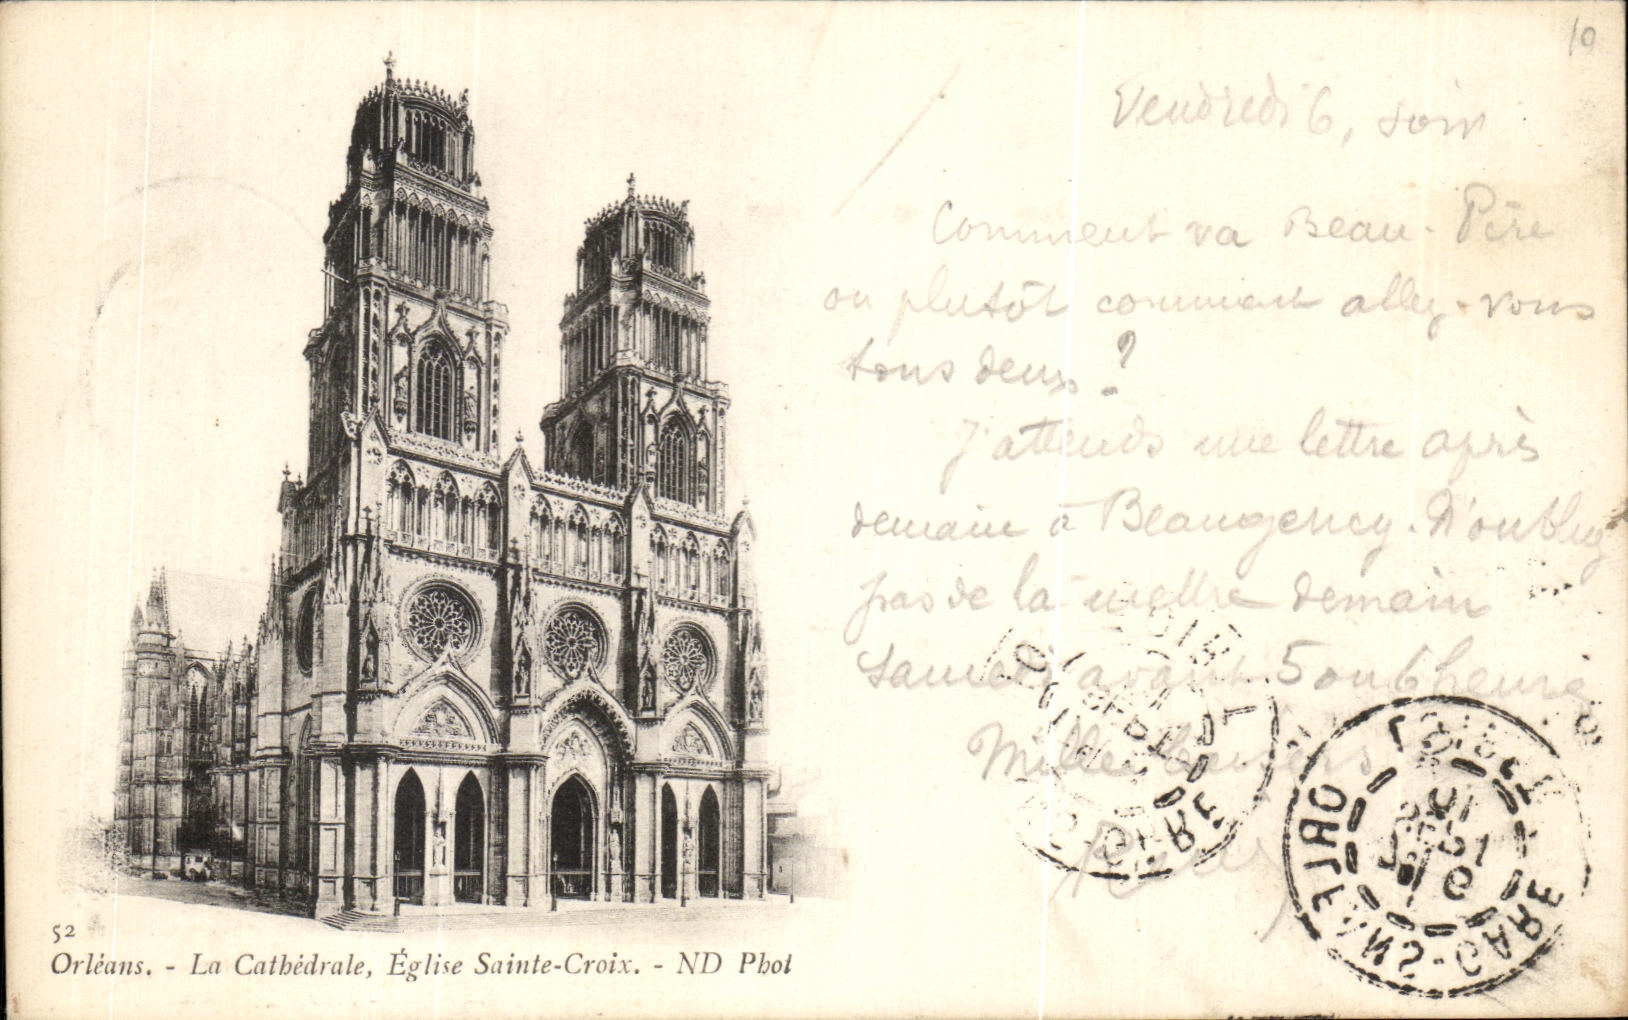 10
Vendredi 6, soir
Comment va Beau-Père
ou plutôt comment allez-vous
tous deux ?
J'attends une lettre après
demain à Beaugency. N'oubliez
pas de la mettre demain
Samedi avant 5 ou 6 heures
Mille baisers
ORLEANS-GARE
LOIRET
52
Orléans. - La Cathédrale, Église Sainte-Croix. - ND Phot